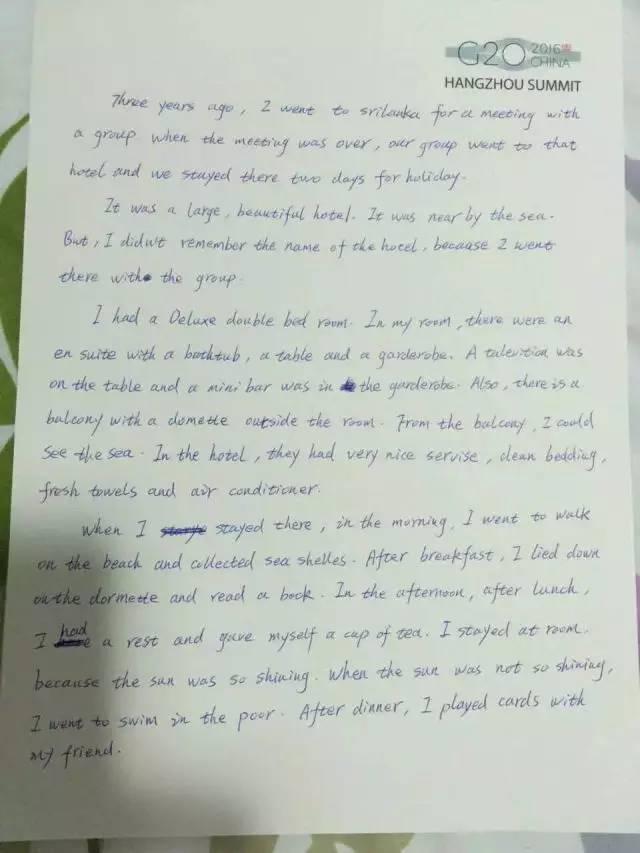 G20 2016 CHINA
HANGZHOU SUMMIT
Three years ago, I went to srilanka for a meeting with
a group when the meeting was over, our group went to that
hotel and we stayed there two days for holiday.
It was a large, beautiful hotel. It was near by the sea.
But, I didn't remember the name of the hotel, because I went
there with the group.
I had a Deluxe double bed room. In my room, there were an
en suite with a bathtub, a table and a garderobe. A talevition was
on the table and a mini bar was in the garderobe. Also, there is a
balcony with a domette outside the room. From the balcony, I could
see the sea. In the hotel, they had very nice servise, clean bedding,
fresh towels and air conditioner.
When I stayed there, in the morning, I went to walk
on the beach and collected sea shelles. After breakfast, I lied down
on the dormette and read a book. In the afternoon, after lunch,
I had a rest and gave myself a cup of tea. I stayed at room.
because the sun was so shining. When the sun was not so shining,
I went to swim in the poor. After dinner, I played cards with
my friend.